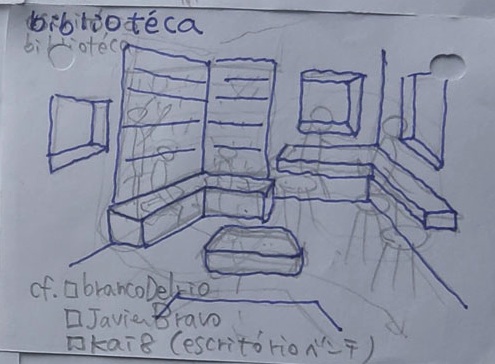 bibliotéca
bibliotéca
cf. □brancoDelrio
□Javier Bravo
□Kai8 (escritórioベンチ)